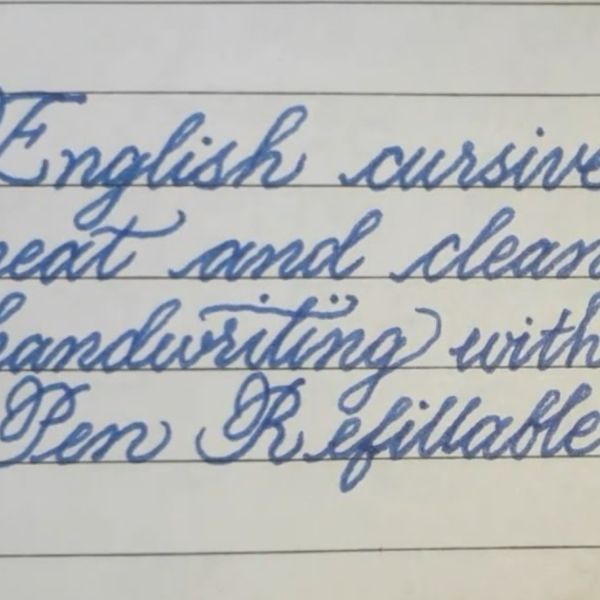 English cursive
neat and clean
handwriting with
Pen Refillable